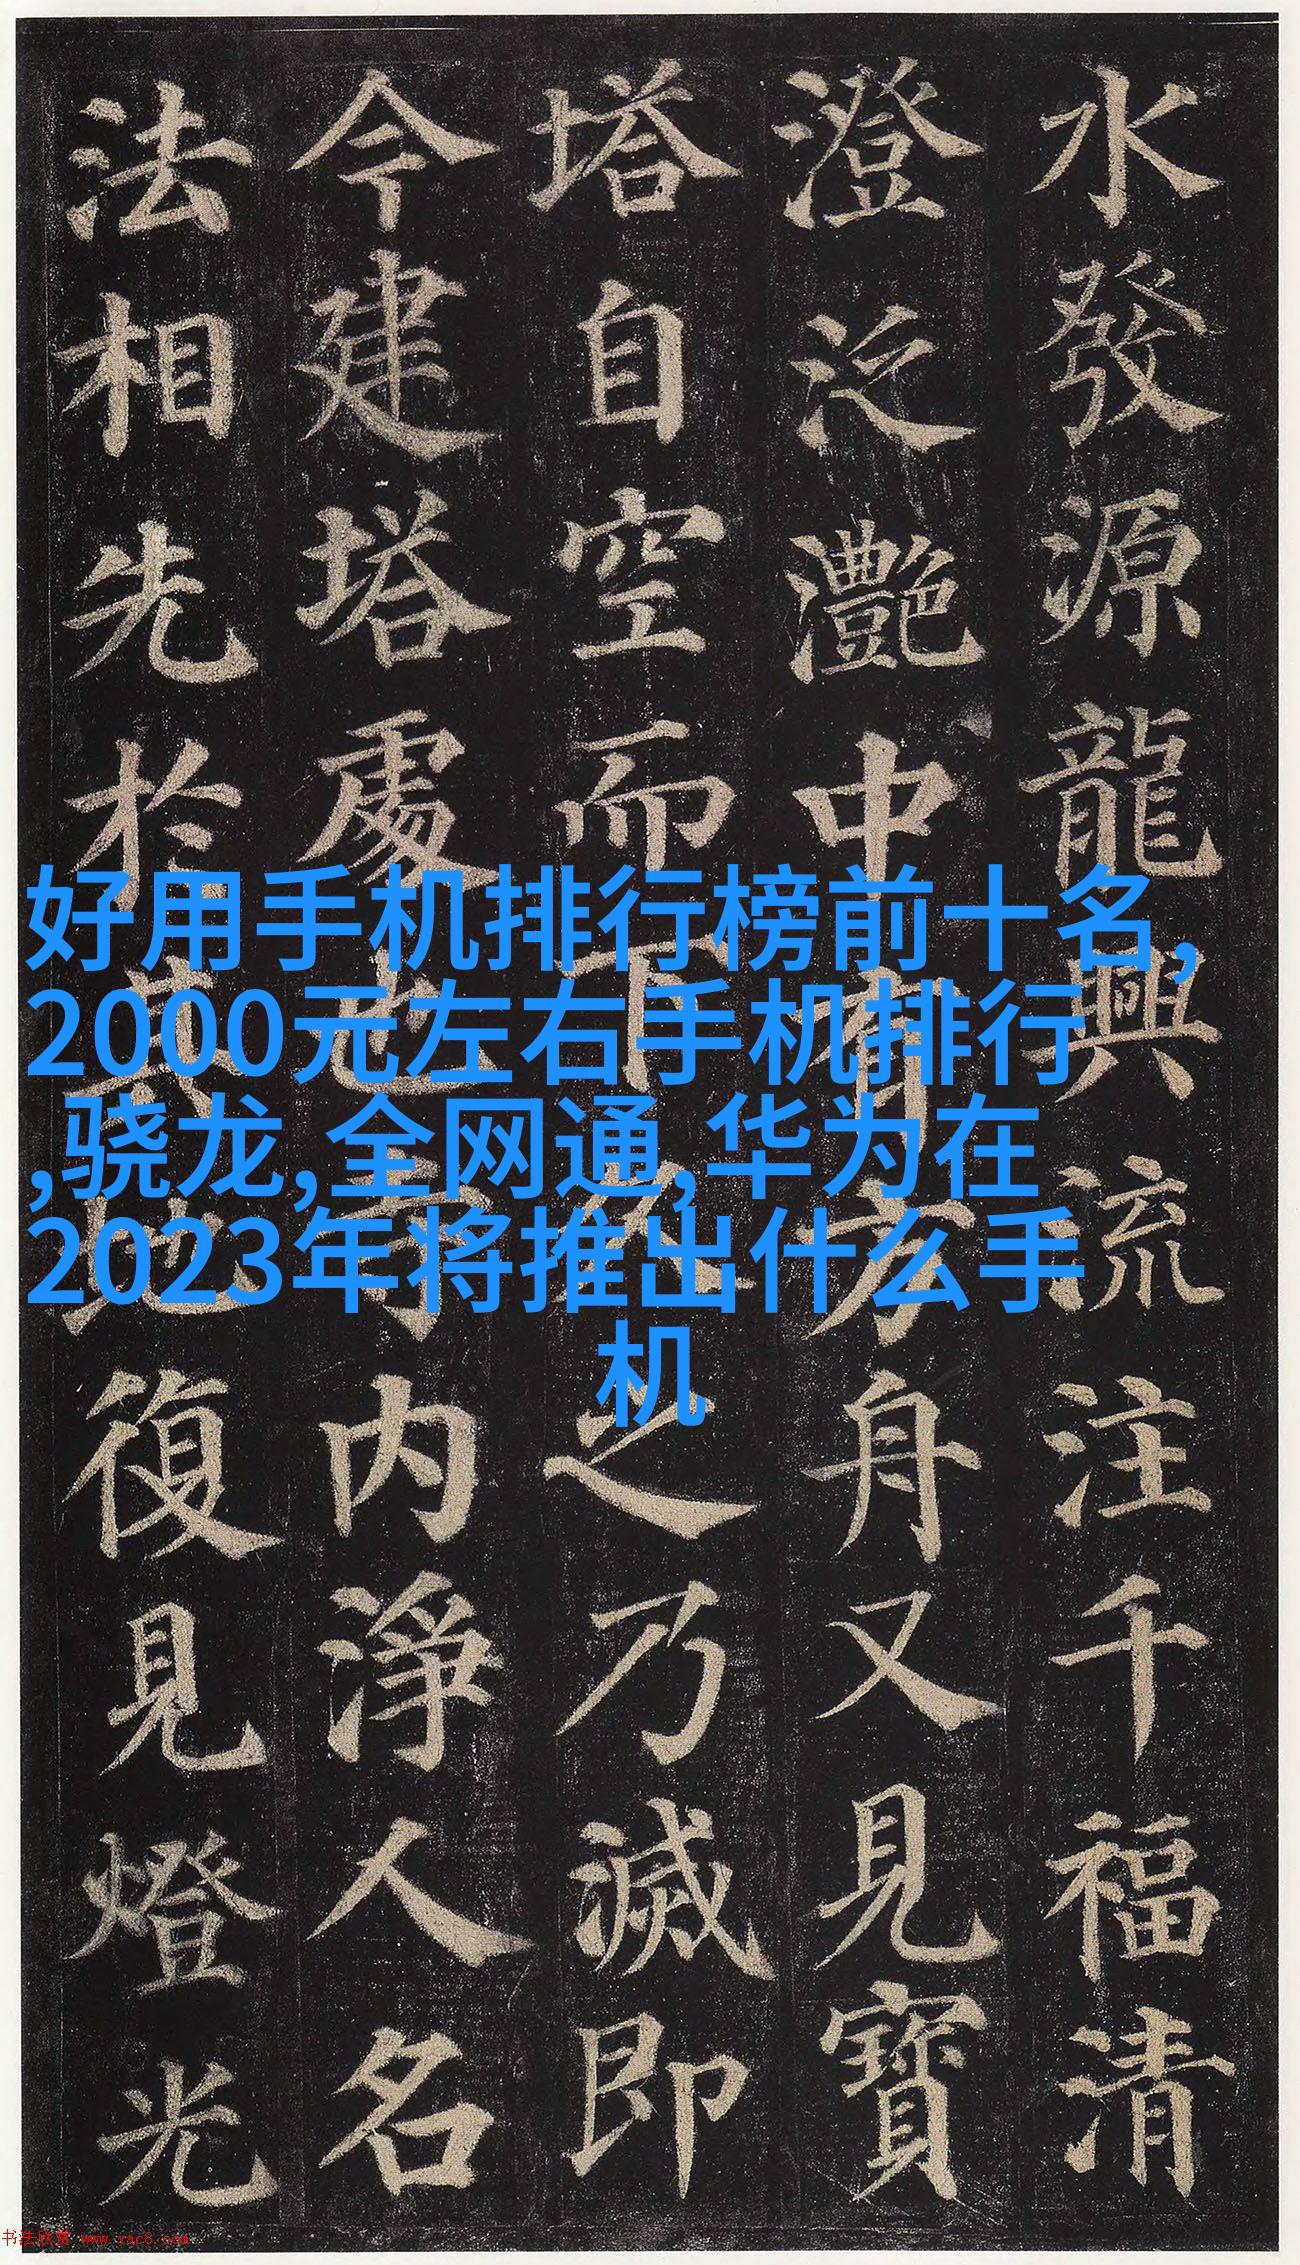 水發源龍興流注千福清
澄泛灩中有方舟又見寶
塔自空而下久之乃滅即
今建塔處也寺内淨人名
法相先於其地復見燈光
好用手机排行榜前十名,
2000元左右手机排行
,骁龙,全网通,华为在
2023年将推出什么手
机
书法欣赏 www.yac8.com